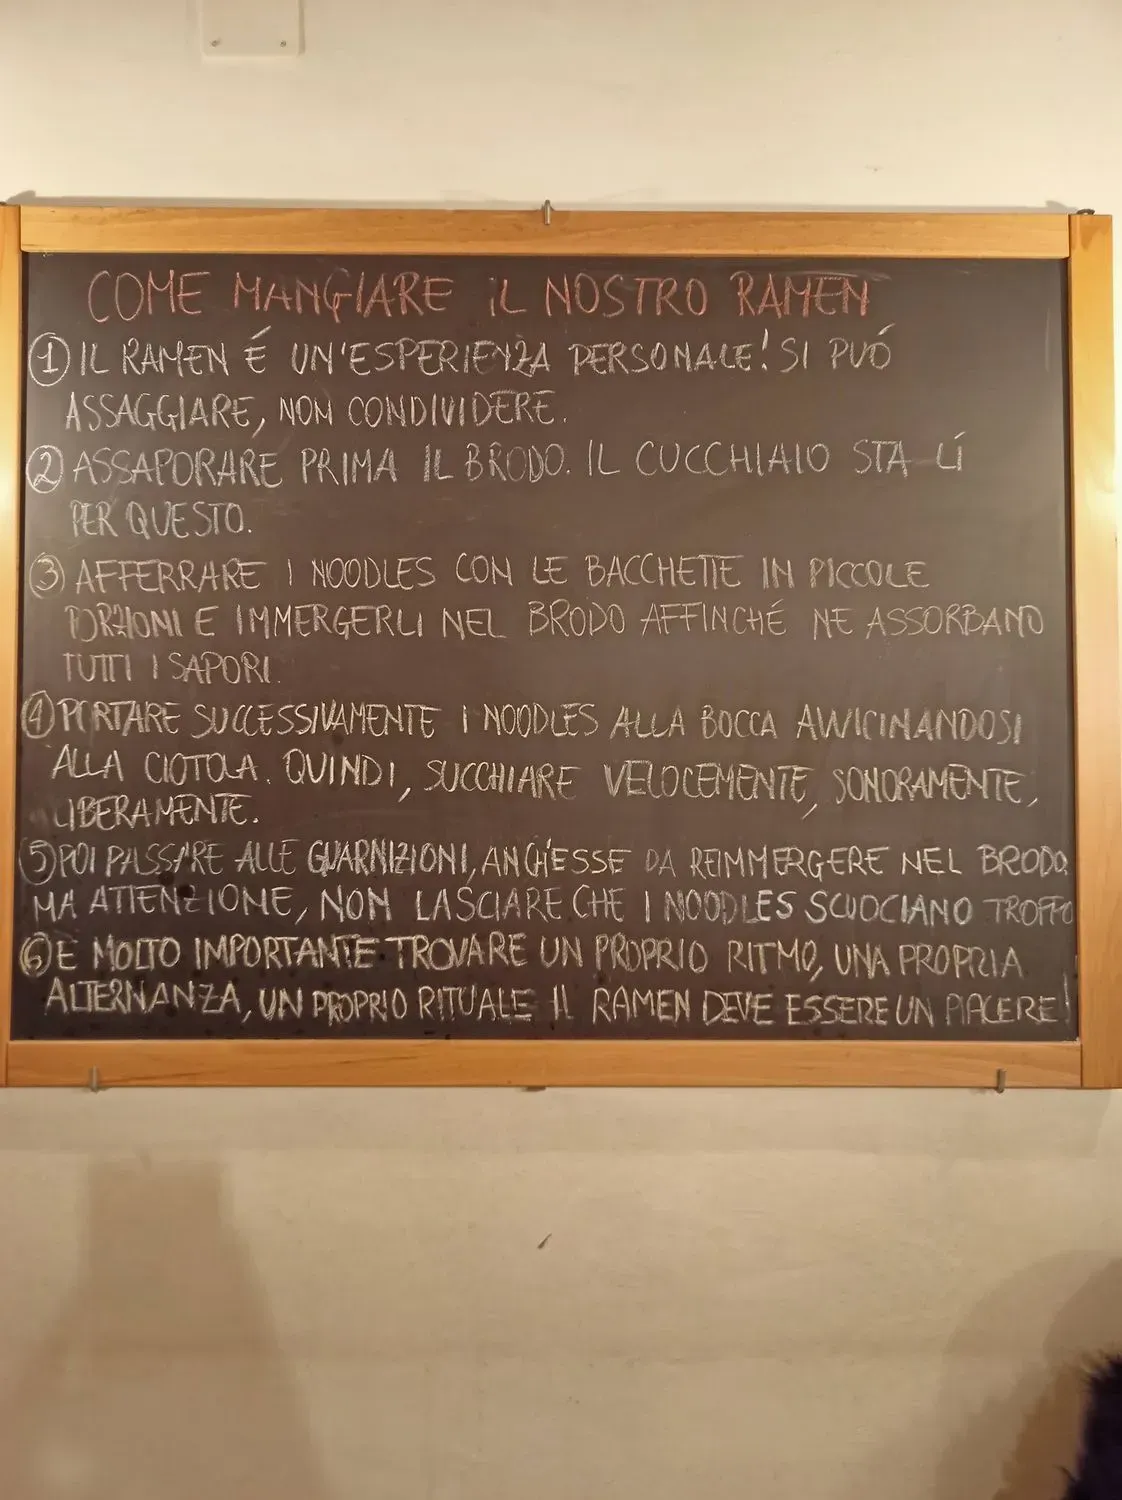 COME MANGIARE IL NOSTRO RAMEN
1 IL RAMEN É UN'ESPERIENZA PERSONALE! SI PUÓ
ASSAGGIARE, NON CONDIVIDERE.
2 ASSAPORARE PRIMA IL BRODO. IL CUCCHIAIO STA LÍ
PER QUESTO.
3 AFFERRARE I NOODLES CON LE BACCHETTE IN PICCOLE
PORZIONI E IMMERGERLI NEL BRODO AFFINCHÉ NE ASSORBANO
TUTTI I SAPORI.
4 PORTARE SUCCESSIVAMENTE I NOODLES ALLA BOCCA AVVICINANDOSI
ALLA CIOTOLA. QUINDI, SUCCHIARE VELOCEMENTE, SONORAMENTE,
LIBERAMENTE.
5 POI PASSARE ALLE GUARNIZIONI, ANCH'ESSE DA REIMMERGERE NEL BRODO.
MA ATTENZIONE, NON LASCIARE CHE I NOODLES SCUOCIANO TROPPO
6 E MOLTO IMPORTANTE TROVARE UN PROPRIO RITMO, UNA PROPRIA
ALTERNANZA, UN PROPRIO RITUALE IL RAMEN DEVE ESSERE UN PIACERE!